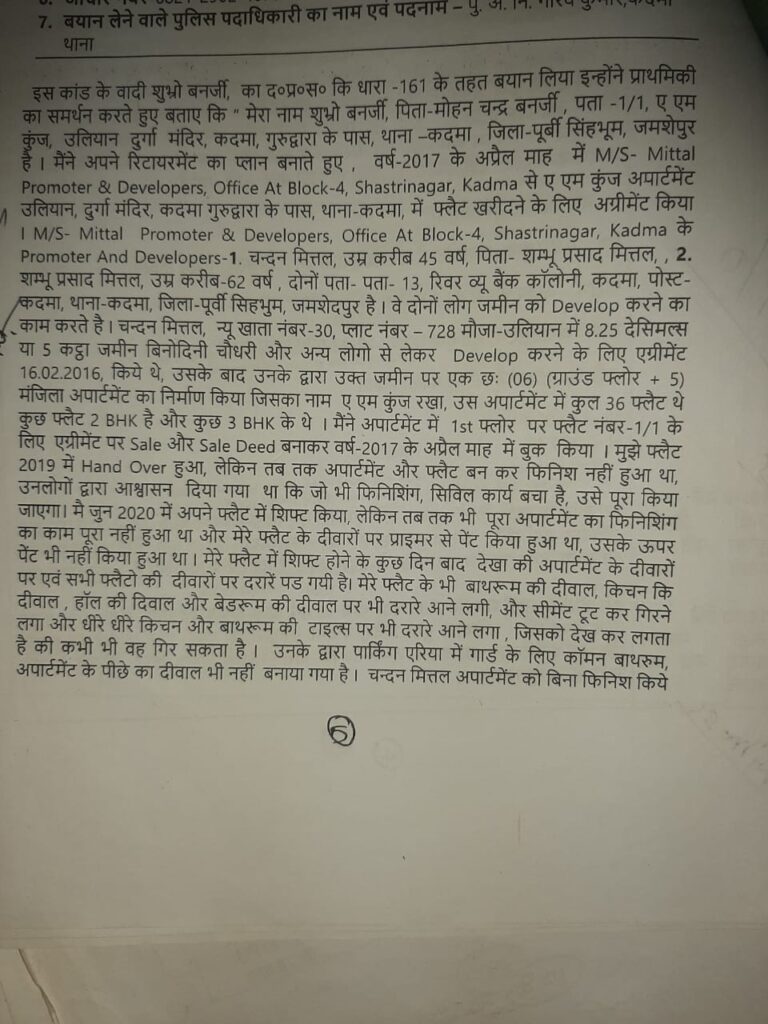 7. बयान लेने वाले पुलिस पदाधिकारी का नाम एवं पदनाम – पु. अ. नि.
थाना
इस कांड के वादी शुभ्रो बनर्जी, का द०प्र०स० कि धारा -161 के तहत बयान लिया इन्होंने प्राथमिकी
का समर्थन करते हुए बताए कि " मेरा नाम शुभ्रो बनर्जी, पिता-मोहन चन्द्र बनर्जी , पता -1/1, ए एम
कुंज, उलियान दुर्गा मंदिर, कदमा, गुरुद्वारा के पास, थाना –कदमा , जिला-पूर्बी सिंहभूम, जमशेपुर
है । मैंने अपने रिटायरमेंट का प्लान बनाते हुए , वर्ष-2017 के अप्रैल माह में M/S- Mittal
Promoter & Developers, Office At Block-4, Shastrinagar, Kadma से ए एम कुंज अपार्टमेंट
उलियान, दुर्गा मंदिर, कदमा गुरुद्वारा के पास, थाना-कदमा, में फ्लैट खरीदने के लिए अग्रीमेंट किया
। M/S- Mittal Promoter & Developers, Office At Block-4, Shastrinagar, Kadma के
Promoter And Developers-1. चन्दन मित्तल, उम्र करीब 45 वर्ष, पिता- शम्भू प्रसाद मित्तल, , 2.
शम्भू प्रसाद मित्तल, उम्र करीब-62 वर्ष , दोनों पता- पता- 13, रिवर व्यू बैंक कॉलोनी, कदमा, पोस्ट-
कदमा, थाना-कदमा, जिला-पूर्वी सिंहभुम, जमशेदपुर है । वे दोनों लोग जमीन को Develop करने का
काम करते है । चन्दन मित्तल, न्यू खाता नंबर-30, प्लाट नंबर – 728 मौजा-उलियान में 8.25 देसिमल्स
या 5 कट्ठा जमीन बिनोदिनी चौधरी और अन्य लोगो से लेकर Develop करने के लिए एग्रीमेंट
16.02.2016, किये थे, उसके बाद उनके द्वारा उक्त जमीन पर एक छः (06) (ग्राउंड फ्लोर + 5)
मंजिला अपार्टमेंट का निर्माण किया जिसका नाम ए एम कुंज रखा, उस अपार्टमेंट में कुल 36 फ्लैट थे
कुछ फ्लैट 2 BHK है और कुछ 3 BHK के थे । मैंने अपार्टमेंट में 1st फ्लोर पर फ्लैट नंबर-1/1 के
लिए एग्रीमेंट पर Sale और Sale Deed बनाकर वर्ष-2017 के अप्रैल माह में बुक किया । मुझे फ्लैट
2019 में Hand Over हुआ, लेकिन तब तक अपार्टमेंट और फ्लैट बन कर फिनिश नहीं हुआ था,
उनलोगों द्वारा आश्वासन दिया गया था कि जो भी फिनिशिंग, सिविल कार्य बचा है, उसे पूरा किया
जाएगा। मै जुन 2020 में अपने फ्लैट में शिफ्ट किया, लेकिन तब तक भी पूरा अपार्टमेंट का फिनिशिंग
का काम पूरा नहीं हुआ था और मेरे फ्लैट के दीवारों पर प्राइमर से पेंट किया हुआ था, उसके ऊपर
पेंट भी नहीं किया हुआ था । मेरे फ्लैट में शिफ्ट होने के कुछ दिन बाद देखा की अपार्टमेंट के दीवारों
पर एवं सभी फ्लैटो की दीवारों पर दरारें पड गयी है। मेरे फ्लैट के भी बाथरूम की दीवाल, किचन कि
दीवाल , हॉल की दिवाल और बेडरूम की दीवाल पर भी दरारे आने लगी, और सीमेंट टूट कर गिरने
लगा और धीरे धीरे किचन और बाथरूम की टाइल्स पर भी दरारे आने लगा , जिसको देख कर लगता
है की कभी भी वह गिर सकता है । उनके द्वारा पार्किंग एरिया में गार्ड के लिए कॉमन बाथरुम,
अपार्टमेंट के पीछे का दीवाल भी नहीं बनाया गया है । चन्दन मित्तल अपार्टमेंट को बिना फिनिश किये